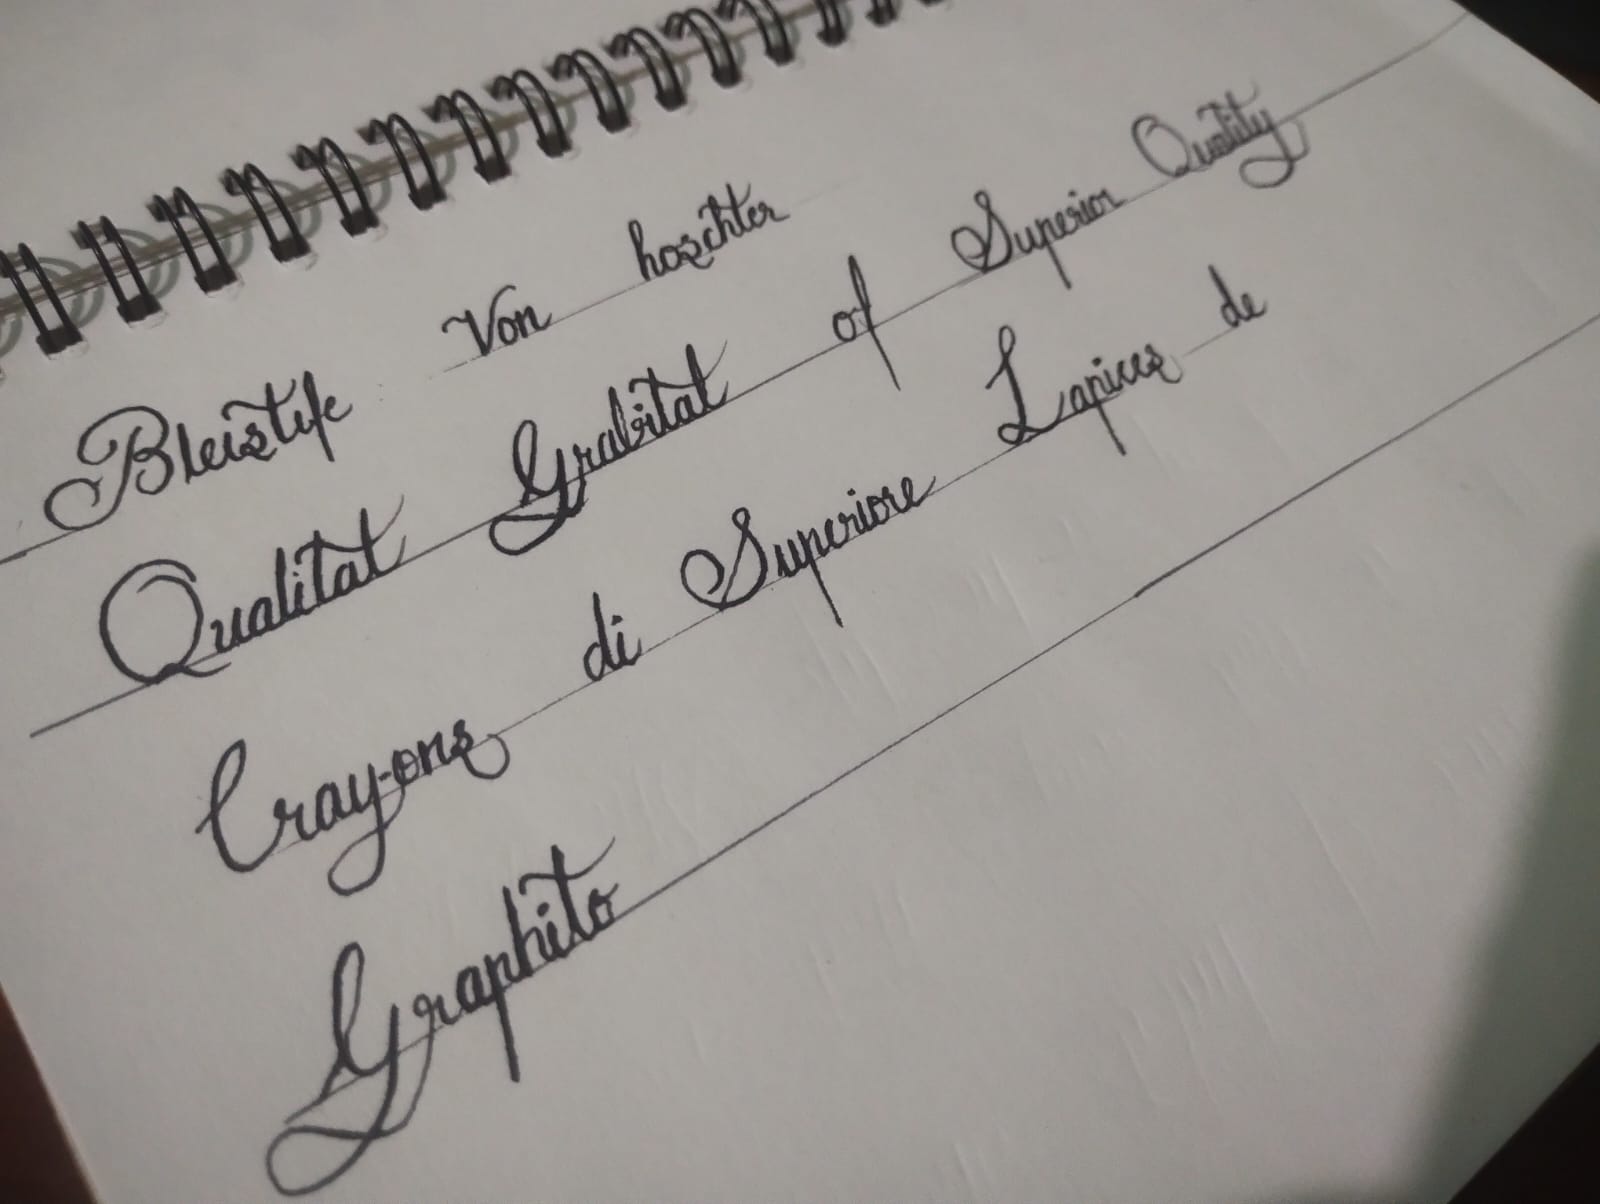 Bleistife Von hoschter
Qualitat Grabitat of Superior Quality
Crayons di Superiore Lapices de
Graphito